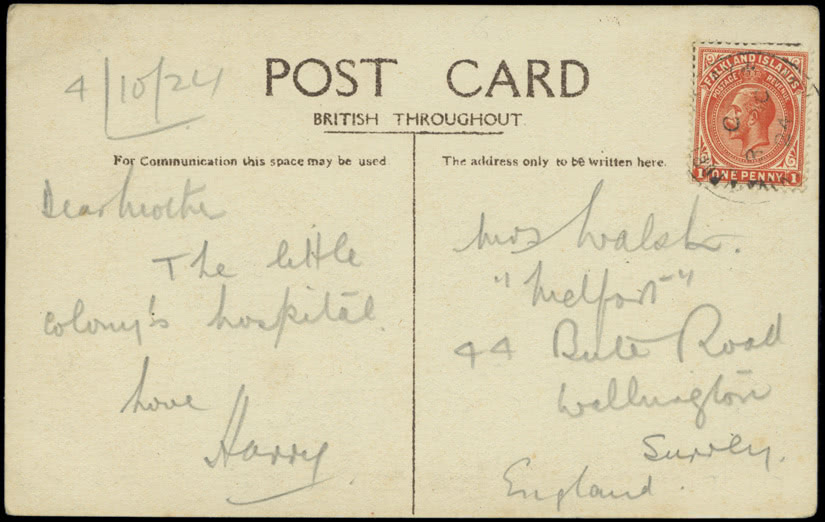 4/10/24
POST CARD
BRITISH THROUGHOUT
For Communication this space may be used
The address only to be written here.
FALKLAND ISLANDS
POSTAGE REVENUE
1 ONE PENNY 1
Dear Mother
The little
colony's hospital.
Love
Harry
Mrs Walsh.
"Melfort"
44 Bute Road
Wallington
Surrey.
England.